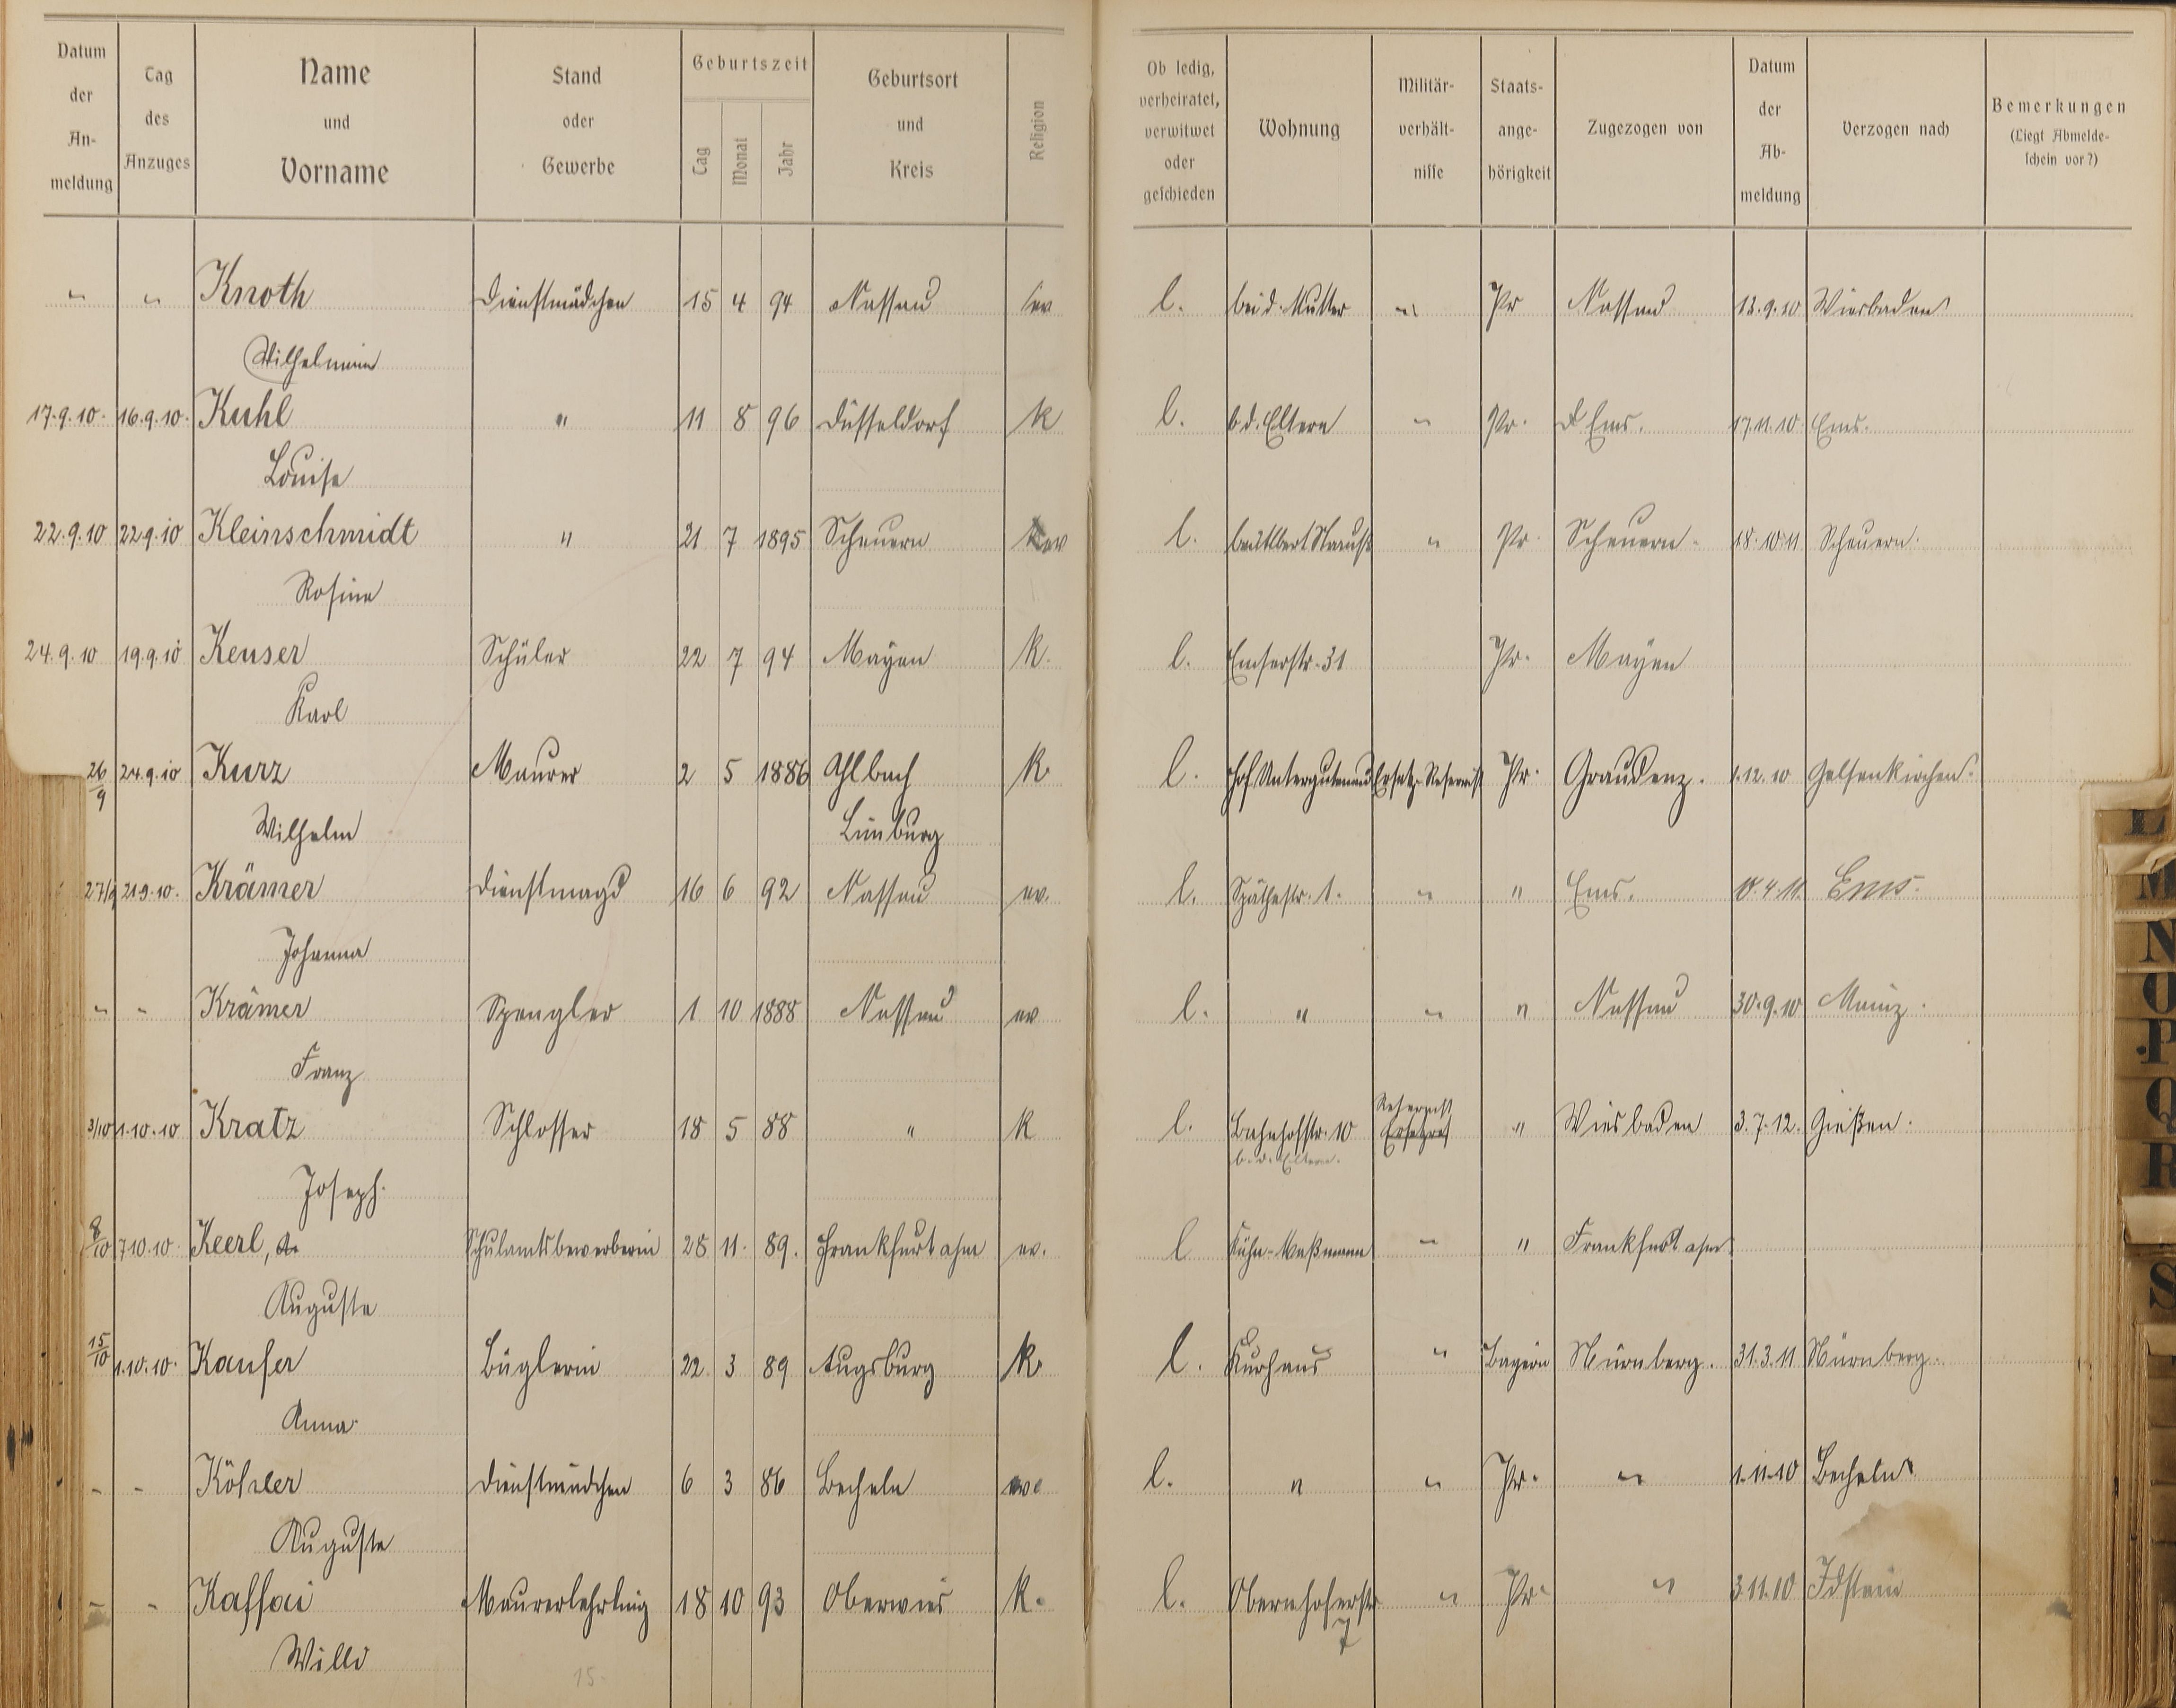 Datum der Anmeldung | Tag des Anzuges | Name und Vorname | Stand oder Gewerbe | Geburtszeit Tag Monat Jahr | Geburtsort und Kreis | Religion | Ob ledig, verheiratet, verwitwet oder geschieden | Wohnung | Militärverhältnisse | Staatsangehörigkeit | Zugezogen von | Datum der Abmeldung | Verzogen nach | Bemerkungen (Liegt Abmeldeschein vor?)
" " Knoth Dienstmädchen 15 4 94 Nassau ev l. bei d. Mutter " Pr Nassau 13.9.10 Wiesbaden
Wilhelmine
17.9.10. 16.9.10. Kuhl " 11 8 96 Düsseldorf k l. b. d. Eltern " Pr. Ems. 17.11.10 Ems.
Louise
22.9.10 22.9.10 Kleinschmidt " 21 7 1895 Scheuern ev l. bei Albert " Pr. Scheuern. 18.10.11 Scheuern.
Rosine
24.9.10 19.9.10 Keuser Schüler 22 7 94 Mayen k. l. Emserstr. 31 Pr. Mayen
Karl
26/9 24.9.10 Kurz Maurer 2 5 1886 Ahlbach k l. Hof Untergutenau Ersatz-Reservist Pr. Graudenz. 1.12.10 Gelsenkirchen.
Wilhelm Limburg
27/9 21.9.10. Krämer Dienstmagd 16 6 92 Nassau ev. l. Späthestr. 1. " " Ems. 18.4.11. Ems.
Johanna
" " Krämer Spengler 1 10 1888 Nassau ev l. " " " Nassau 30.9.10 Mainz.
Franz
3/10 1.10.10 Kratz Schlosser 18 5 88 " k l. Bahnhofstr. 10 Reservist " Wiesbaden 3.7.12. Gießen.
b. d. Eltern.
Joseph.
8/10 7.10.10 Keerl, Schulamtsbewerberin 28 11. 89. Frankfurt a/m ev. l Kühn-Maßmann " " Frankfurt a/m.
Auguste
15/10 1.10.10. Kaufer Büglerin 22. 3 89 Augsburg k l. Kurhaus " Bayern Nürnberg. 31.3.11 Nürnberg.
Anna
- - Köhler Dienstmädchen 6 3 86 Becheln ev l. " " Pr. " 1.11.10 Becheln
Auguste
- - Kaffai Maurerlehrling 18 10 93 Oberwies k. l. Obernhoferstr " Pr. " 3.11.10 Idstein
7
Willi
15
L
M
N
O
P
Q
R
S